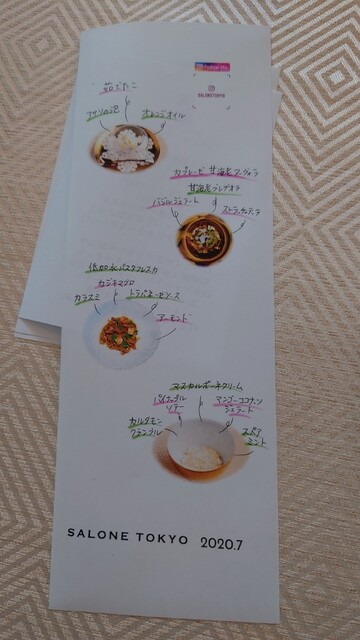 Follow Me
SALONETOKYO
茹でたこ
アサリの泡
オレンジオイル
カプレーゼ 甘海老マングオラ
甘海老
バジルジェラート
ストラッチャテッラ
低加水パスタフレスカ
カジキマグロ
カラスミ
トラパネーゼソース
アーモンド
マスカルポーネクリーム
パイナップル
マンゴーココナッツ
ジェラート
カルダモン
クランブル
スペア
ミント
SALONE TOKYO 2020.7